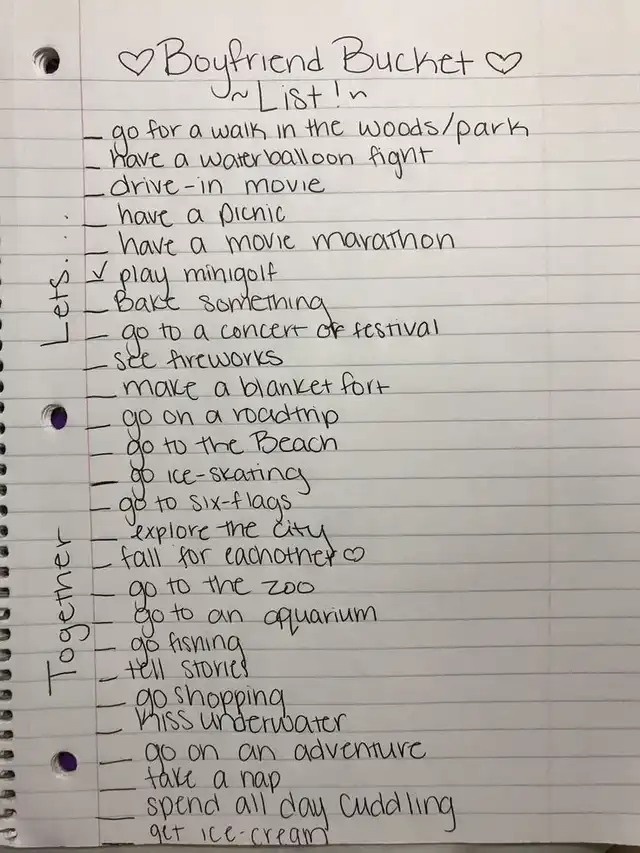 ♡ Boyfriend Bucket ♡
~ List! ~
_ go for a walk in the woods/park
_ have a waterballoon fight
_ drive-in movie
_ have a picnic
_ have a movie marathon
✓ play minigolf
_ Bake something
_ go to a concert or festival
_ see fireworks
_ make a blanket fort
_ go on a roadtrip
_ go to the Beach
_ go ice-skating
_ go to six-flags
_ explore the city
_ fall for eachother ♡
_ go to the zoo
_ go to an aquarium
_ go fishing
_ tell stories
_ go shopping
_ kiss underwater
_ go on an adventure
_ take a nap
_ spend all day cuddling
_ get ice-cream
Lets...
Together